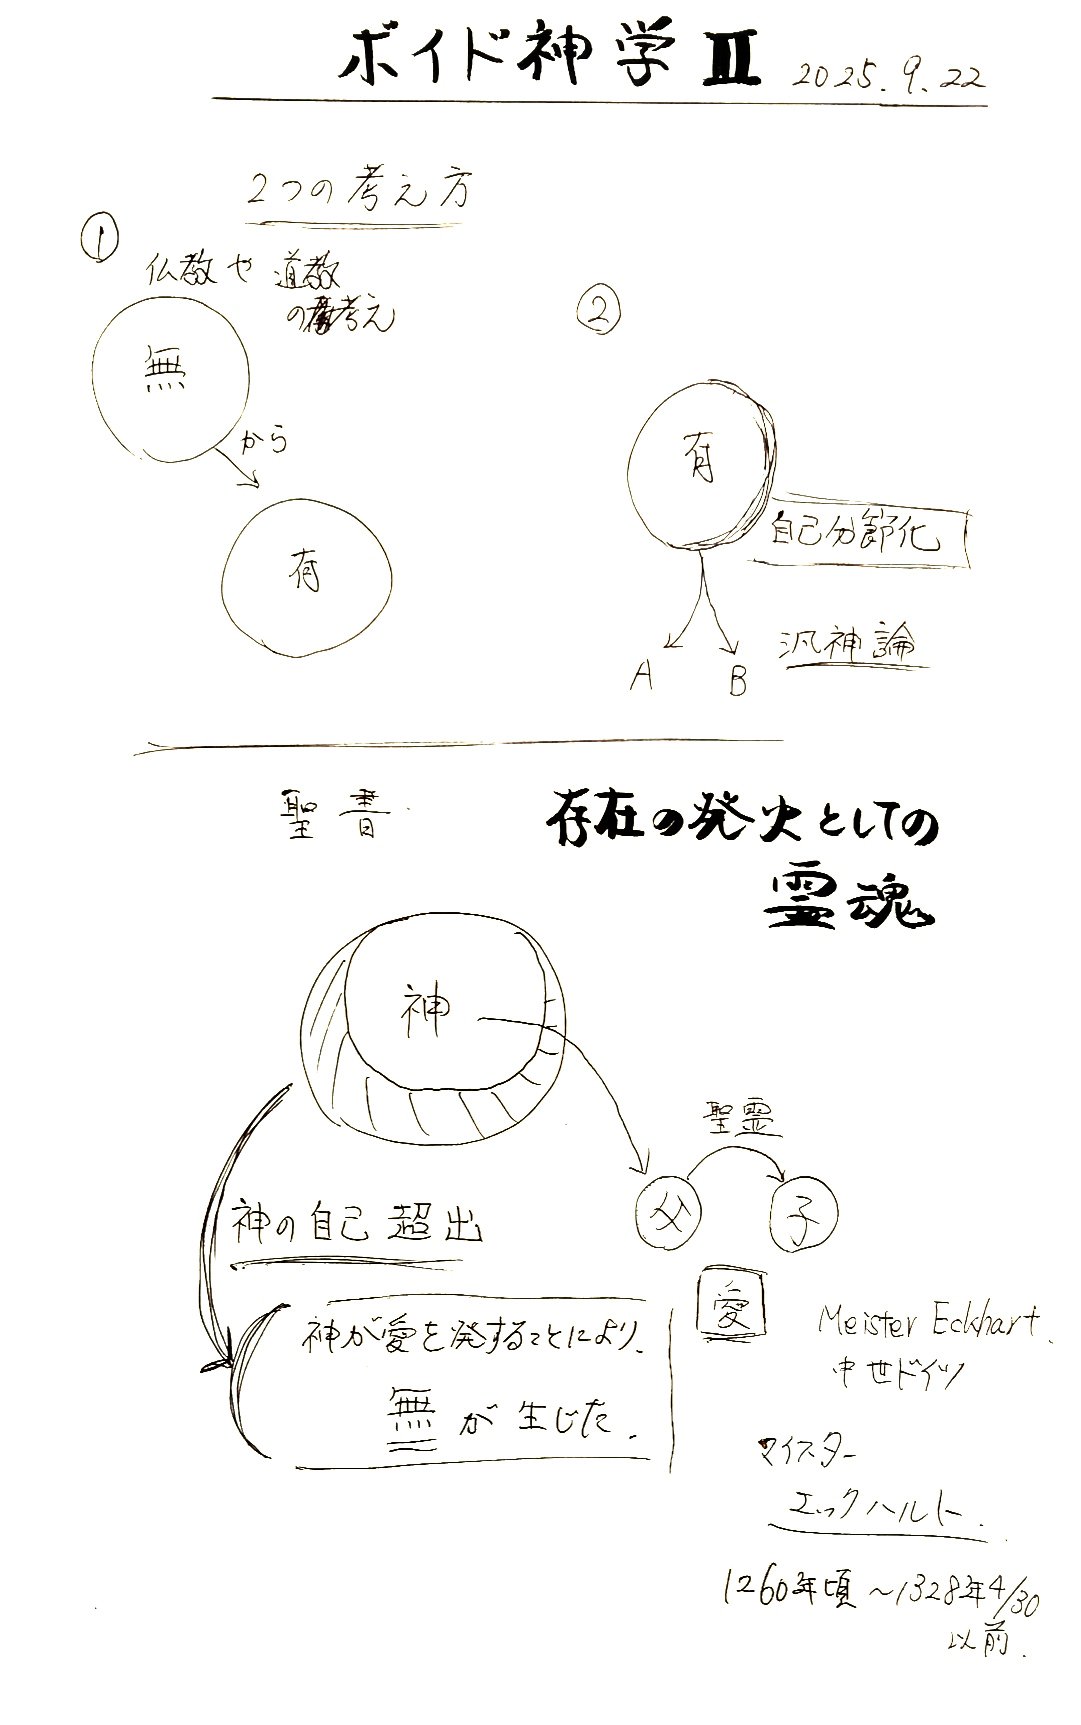 ボイド神学Ⅲ 2025.9.22
2つの考え方
①
仏教や道教
の考え
無
から
有
②
有
自己分節化
A B
汎神論
聖書
存在の発火としての
霊魂
神
聖霊
父 子
神の自己超出
愛
神が愛を発することにより、
無が生じた.
Meister Eckhart.
中世ドイツ
マイスター
エックハルト.
1260年頃~1328年4/30
以前.